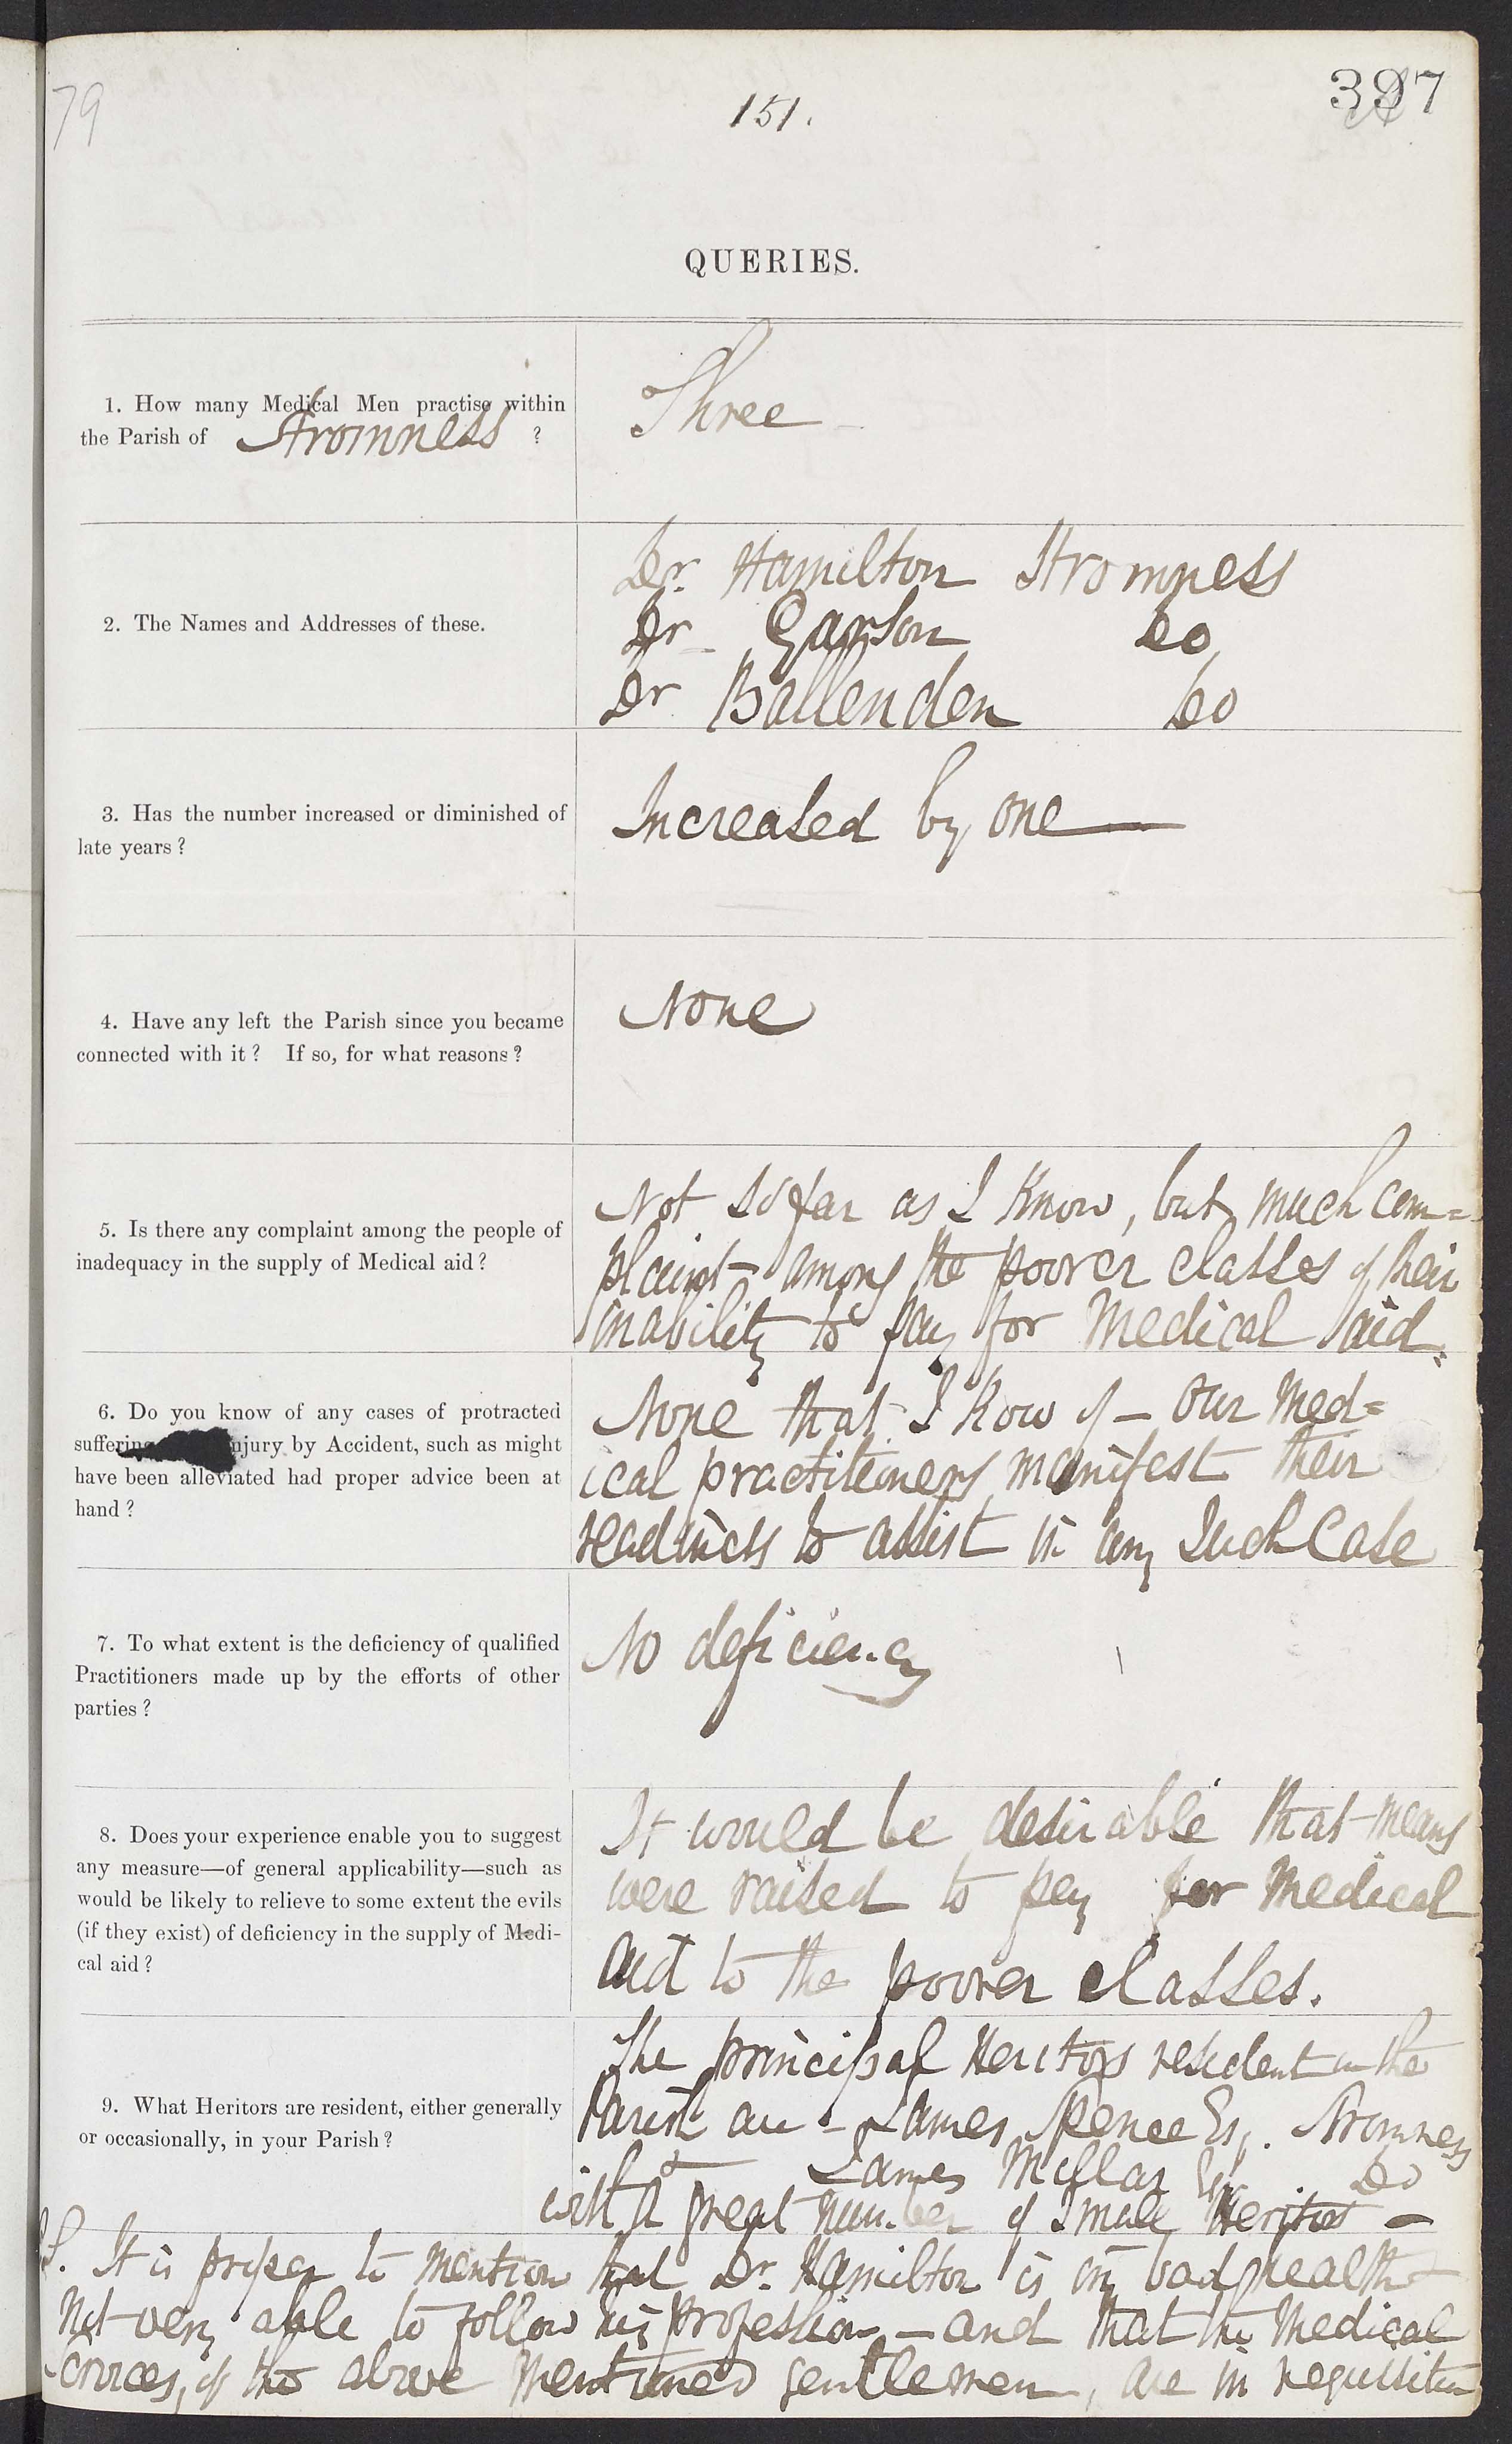 79
151.
397
QUERIES.
1. How many Medical Men practise within
the Parish of Stromness ?
Three
2. The Names and Addresses of these.
Dr. Hamilton Stromness
Dr Garson Do
Dr Ballenden Do
3. Has the number increased or diminished of
late years?
Increased by one
4. Have any left the Parish since you became
connected with it? If so, for what reasons?
None
5. Is there any complaint among the people of
inadequacy in the supply of Medical aid?
Not so far as I know, but much com=
plaint among the poorer classes of their
inability to pay for Medical aid.
6. Do you know of any cases of protracted
suffering injury by Accident, such as might
have been alleviated had proper advice been at
hand?
None that I know of – Our Med=
ical practitioners manifest their
readiness to assist in any such case
7. To what extent is the deficiency of qualified
Practitioners made up by the efforts of other
parties?
No deficiency
8. Does your experience enable you to suggest
any measure—of general applicability—such as
would be likely to relieve to some extent the evils
(if they exist) of deficiency in the supply of Medi-
cal aid?
It would be desirable that means
were raised to pay for Medical
aid to the poorer classes.
9. What Heritors are resident, either generally
or occasionally, in your Parish?
The principal Heritors resident in the
Parish are – James Spence Esq. Stromness
James Millar Esq Do
with a great number of small Heritors –
P.S. It is proper to mention that Dr. Hamilton is in bad health &
Not very able to follow his profession – and that the Medical
Services, of the above mentioned gentlemen, are in requisition